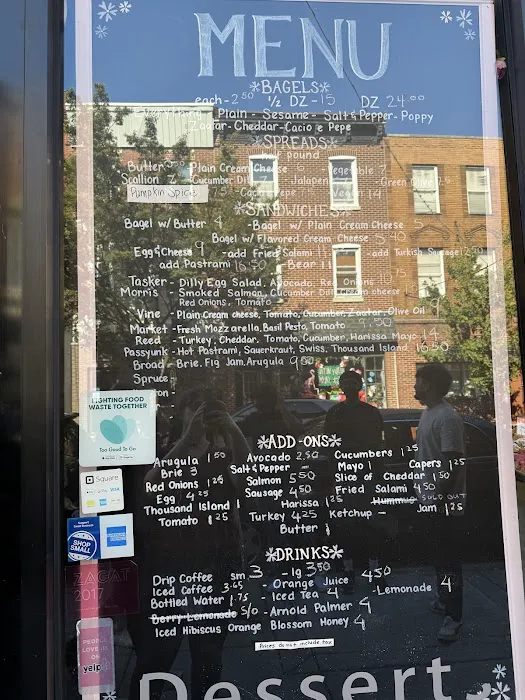 MENU
*BAGELS*
each-2.50 1/2 DZ-15 DZ 24.00
Plain - Sesame - Salt & Pepper - Poppy
Zaatar-Cheddar-Cacio e Pepe
*SPREADS*
pound
Butter Plain Cream Cheese
Scallion 7 Cucumber Dill Jalapeno Green Olive
Pumpkin Spice
*SANDWICHES*
Bagel w/ Butter 4 -Bagel w/ Plain Cream Cheese
Bagel w/ Flavored Cream Cheese
Egg & Cheese 9 -add Fried Salami -add Turkish Sausage
add Pastrami 16.50
Tasker - Dilly Egg Salad, Avocado, Red Onions
Morris - Smoked Salmon, Cucumber Dill Cream cheese
Red Onions, Tomato
Vine - Plain Cream cheese, Tomato, Cucumber, Zaatar, Olive Oil
Market - Fresh Mozzarella, Basil Pesto, Tomato 9.50
Reed - Turkey, Cheddar, Tomato, Cucumber, Harissa Mayo 14
Passyunk - Hot Pastrami, Sauerkraut, Swiss, Thousand Island 16.50
Broad - Brie, Fig Jam, Arugula 9.50
Spruce
FIGHTING FOOD
WASTE TOGETHER
Too Good To Go
*ADD-ONS*
Arugula 1.50 Avocado 2.50 Cucumbers 1.25
Brie 3 Salt & Pepper - Mayo 1 Capers 1.25
Red Onions 1.25 Salmon 5.50 Slice of Cheddar 1.50
Egg 4.25 Sausage 4.50 Fried Salami 4.50
Thousand Island 1 Harissa 1.25 Hummus SOLD OUT
Tomato 1.25 Turkey 4.25 Ketchup - Jam 1.25
Butter 1
Square
VISA
SHOP
SMALL
AMERICAN
EXPRESS
*DRINKS*
Drip Coffee sm 3 - lg 3.50
Iced Coffee 3.65 - Orange Juice 4.50
Bottled Water 1.75 - Iced Tea 4 -Lemonade 4
Berry Lemonade S/O -Arnold Palmer 4
Iced Hibiscus Orange Blossom Honey 4
Prices do not include tax
ZAGAT
2017
PEOPLE
LOVE US
ON
yelp
Dessert